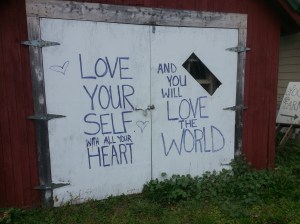 LOVE
YOUR
SELF
WITH ALL YOUR
HEART
AND
YOU
WILL
LOVE
THE
WORLD